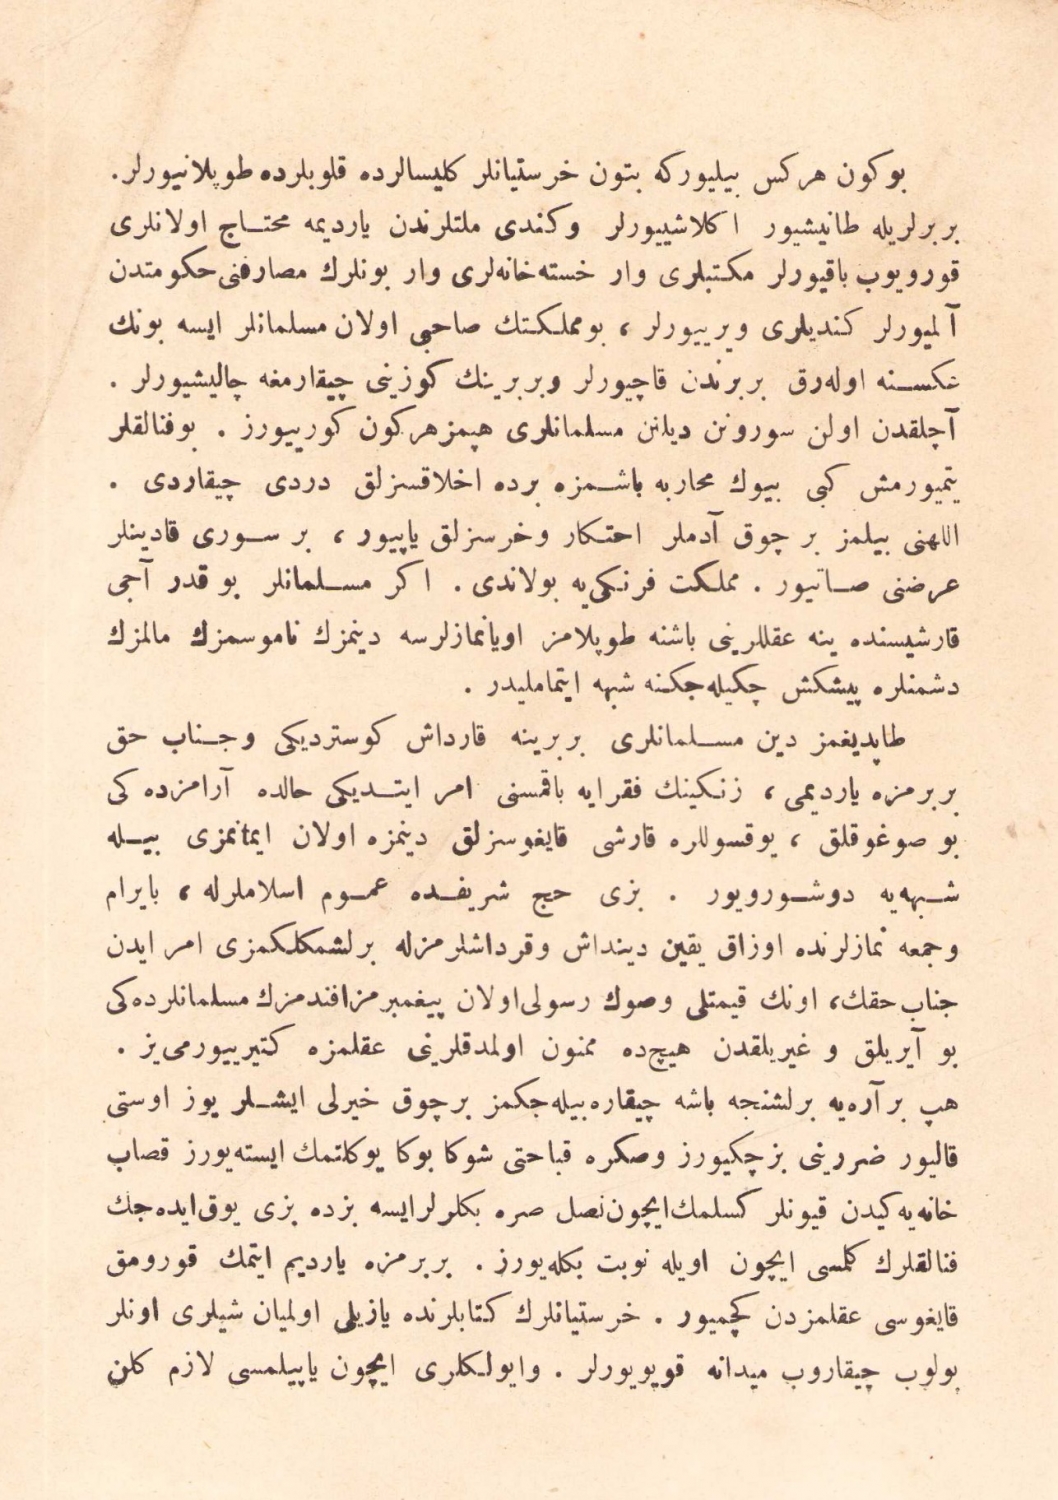 بوكون هركس بيليوركه بتون خرستيانلر كليسالرده قلوبلرده طوپلانيورلر.
بربرلريله طانيشيور اكلاشييورلر وكندى ملتلرندن يارديمه محتاج اولانلرى
قورويوب باقيورلر مكتبلرى وار خسته‌خانه‌لرى وار بونلرك مصارفنى حكومتدن
آلميورلر كنديلرى ويرييورلر ، بومملكتك صاحبى اولان مسلمانلر ايسه بونك
عكسنه اوله‌رق بربرندن قاچيورلر وبربرينك كوزينى چيقارمغه چاليشيورلر .
آچلقدن اولن سورونن ديلنن مسلمانلرى هپمز هركون كورييورز . بوفنالقلر
يتميورمش كبى بيوك محاربه باشمزه برده اخلاقسزلق دردى چيقاردى .
اللهنى بيلمز بر چوق آدملر احتكار وخرسزلق ياپيور ، بر سورى قادينلر
عرضنى صاتيور . مملكت فرنكى‌يه بولاندى . اكر مسلمانلر بو قدر آجى
قارشيسنده ينه عقللرينى باشنه طوپلامز اويانمازلرسه دينمزك ناموسمزك مالمزك
دشمنلره پيشكش چكيله‌جكنه شبهه ايتمامليدر .
طاپديغمز دين مسلمانلرى بربرينه قارداش كوسترديكى وجناب حق
بربرمزه يارديمى ، زنكينك فقرايه باقمسنى امر ايتديكى حالده آرامزده كى
بو صوغوقلق ، يوقسوللره قارشى قايغوسزلق دينمزه اولان ايمانمزى بيله
شبهه‌يه دوشورويور . بزى حج شريفده عموم اسلاملرله ، بايرام
وجمعه نمازلرنده اوزاق يقين دينداش وقرداشلرمزله برلشمكلكمزى امر ايدن
جناب حقك، اونك قيمتلى وصوك رسولى اولان پيغمبرمز افندمزك مسلمانلرده كى
بو آيريلق و غيريلقدن هيچ‌ده ممنون اولمدقلرينى عقلمزه كتيرييورمى‌يز .
هپ بر آره‌يه برلشنجه باشه چيقاره‌بيله‌جكمز برچوق خيرلى ايشلر يوز اوستى
قاليور ضررينى بزچكيورز وصكره قباحتى شوكا بوكا يوكلتمك ايسته‌يورز قصاب
خانه‌يه كيدن قيونلر كسلمك ايچون نصل صره بكلرلرايسه بزده بزى يوق ايده‌جك
فنالقلرك كلمسى ايچون اويله نوبت بكله‌يورز . بربرمزه يارديم ايتمك قورومق
قايغوسى عقلمزدن كچميور . خرستيانلرك كتابلرنده يازيلى اولميان شيلرى اونلر
بولوب چيقاروب ميدانه قويويورلر . وايولكلرى ايچون ياپيلمسى لازم كلن